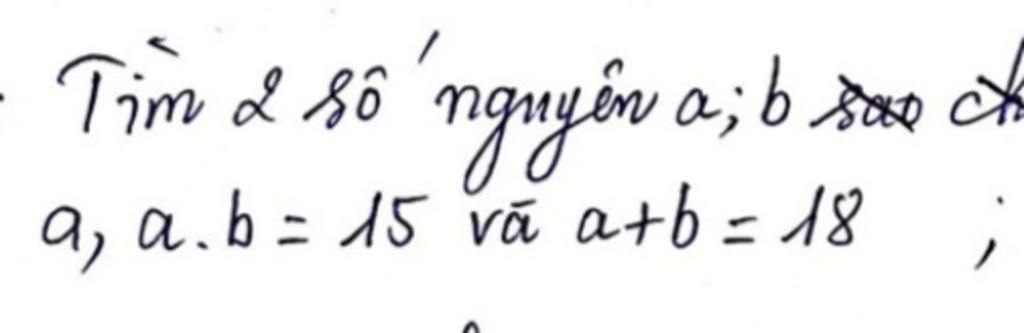 Tìm 2 số nguyên a; b sao ch
a, a.b = 15 và a+b = 18 ;